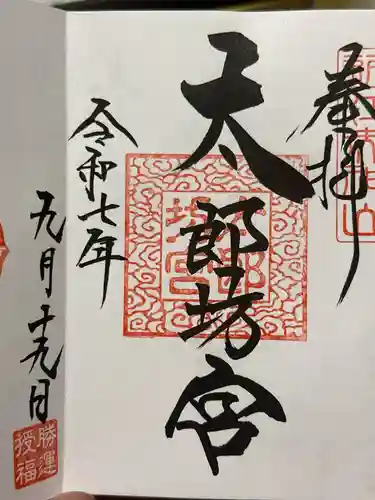 奉拝
太郎坊宮
令和七年
九月十九日
勝運
授福